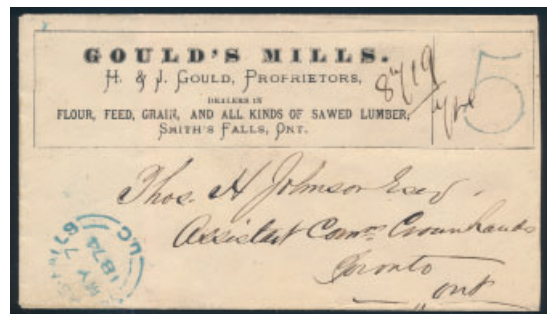 GOULD'S MILLS.
H. & J. GOULD, PROPRIETORS,
DEALERS IN
FLOUR, FEED, GRAIN, AND ALL KINDS OF SAWED LUMBER,
SMITH'S FALLS, ONT.
8719
5
Thos. H Johnson Esqr.
Assistant Comr. Crown Lands
Toronto
Ont
MY 7
1874